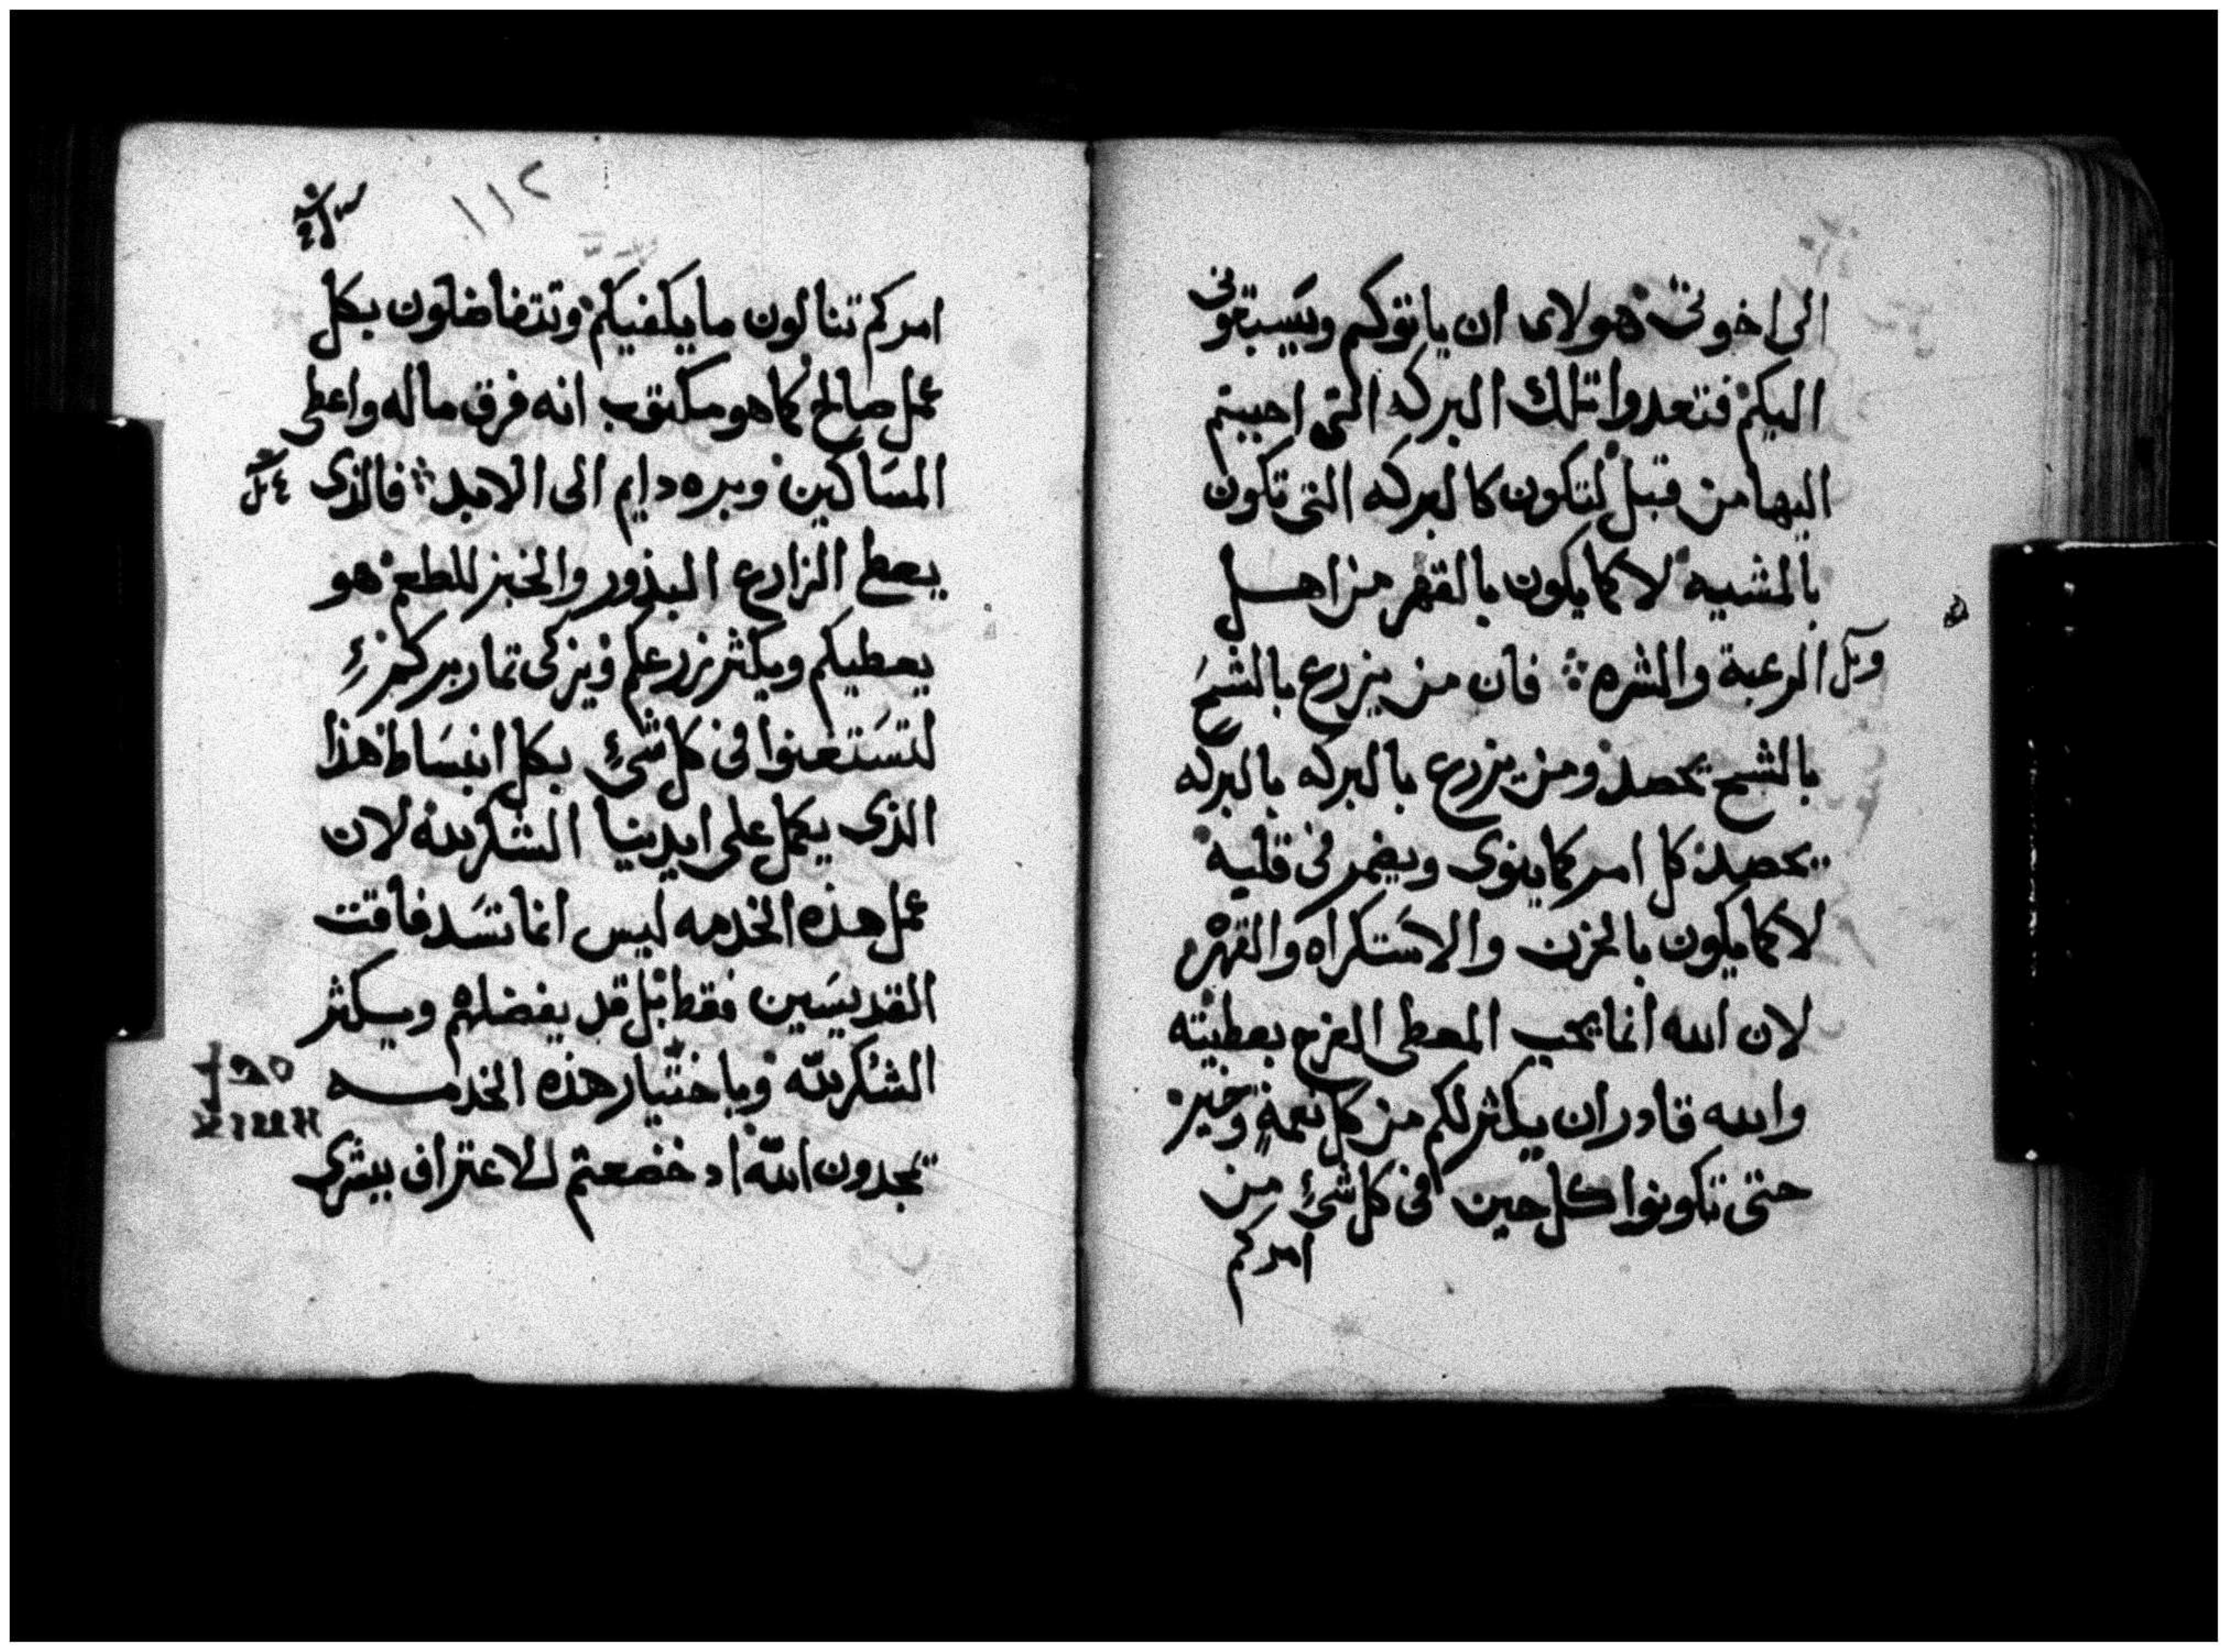 الى اخوتى هولاى ان ياتوكم ويسبقونى
اليكم فتعدوا تلك البركه التى احببتم
اليها من قبل لتكون كالبركه التى تكون
بالمشيه لا كما يكون بالقهر من اهل
الرغبة والشره فان من يزرع بالشح
بالشح يحصد ومن يزرع بالبركه بالبركه
يحصد كل امر كما ينوى ويضمر فى قلبه
لا كما يكون بالحزن والاستكراه والقهر
لان الله انما يحب المعطى الفرح بعطيته
والله قادر ان يكثر لكم من كل نعمة وخير
حتى تكونوا كل حين فى كل شئ من
امركم
١١٢
امركم تنالون ما يكفيكم وتتفاضلون بكل
عمل صالح كما هو مكتوب انه فرق ماله واعطى
المساكين وبره دايم الى الابد فالذى
يعط الزارع البذور والخبز للطعم هو
يعطيكم ويكثر زرعكم ويزكى ثمار بركم
لتستغنوا فى كل شئ بكل انبساط هذا
الذى يكمل على ايدينا الشكر لله لان
عمل هذه الخدمه ليس انما تسد فاقت
القديسين فقط بل قد يفضلهم ويكثر
الشكر لله وباختيار هذه الخدمه
تمجدون الله اد خضعتم للاعتراف ببشرى